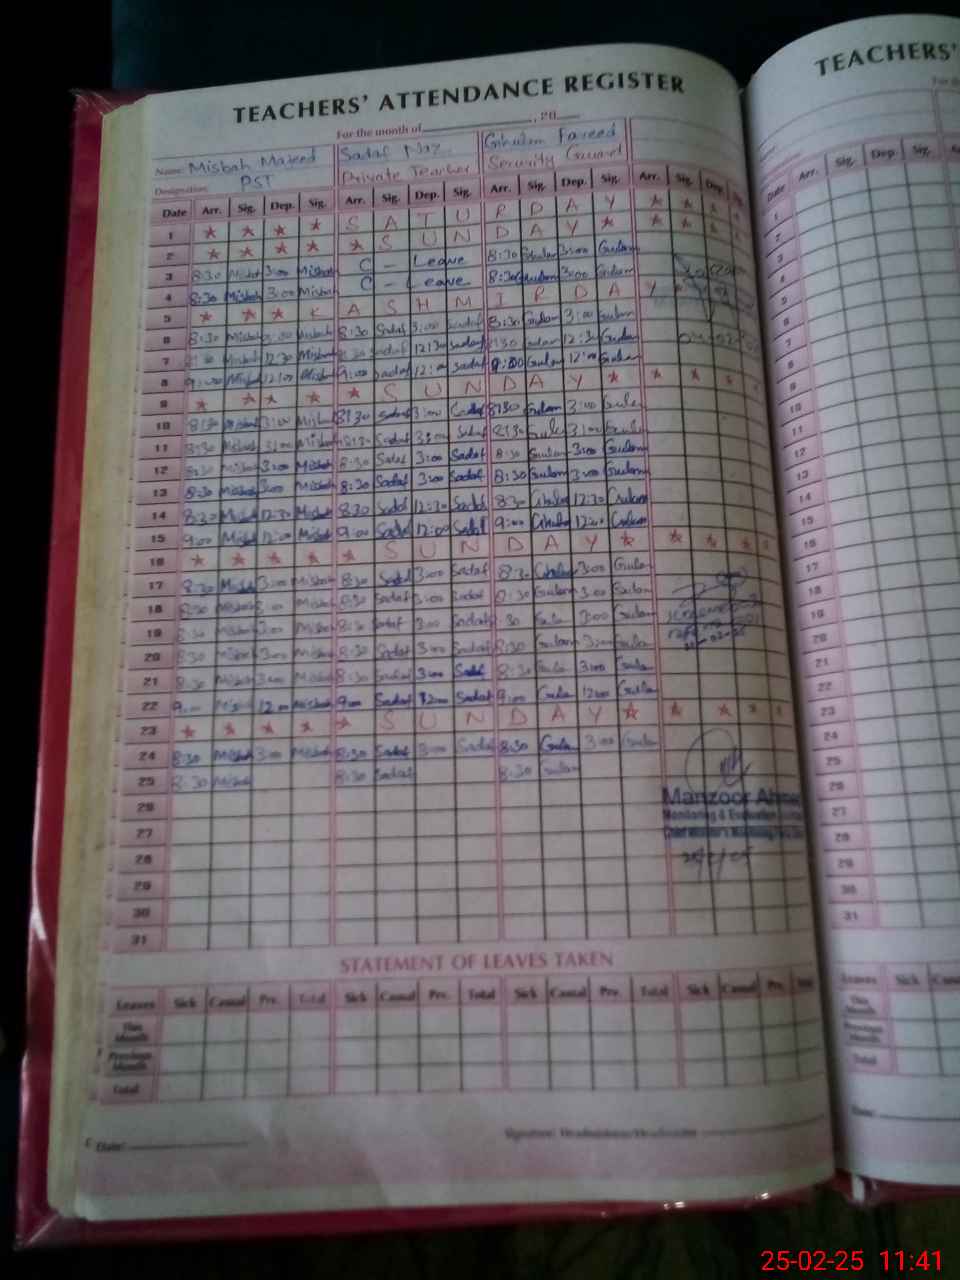 TEACHERS' ATTENDANCE REGISTER
For the month of , 20
Name: Misbah Majeed Sadaf Naz Ghulam Fareed
Designation: PST Private Teacher Security Guard
Date Arr. Sig. Dep. Sig. Arr. Sig. Dep. Sig. Arr. Sig. Dep. Sig. Arr. Sig. Dep. Sig.
1 * * * * S A T U R D A Y * * * *
2 * * * * * S U N D A Y * * * * *
3 8:30 Misbah 3:00 Misbah C - Leave 8:30 Ghulam 3:00 Gulam
4 8:30 Misbah 3:00 Misbah C - Leave 8:30 Ghulam 3:00 Gulam
5 * * * K A S H M I R D A Y
6 8:30 Misbah 3:00 Misbah 8:30 Sadaf 3:00 Sadaf 8:30 Gulam 3:00 Gulam
7 8:30 Misbah 12:30 Misbah 8:30 Sadaf 12:30 Sadaf 8:30 Gulam 12:30 Gulam
8 9:00 Misbah 12:00 Misbah 9:00 Sadaf 12:00 Sadaf 9:00 Gulam 12:00 Gulam
9 * * * * * S U N D A Y * * * * *
10 8:30 Misbah 3:00 Misbah 8:30 Sadaf 3:00 Sadaf 8:30 Gulam 3:00 Gulam
11 8:30 Misbah 3:00 Misbah 8:30 Sadaf 3:00 Sadaf 8:30 Gulam 3:00 Gulam
12 8:30 Misbah 3:00 Misbah 8:30 Sadaf 3:00 Sadaf 8:30 Gulam 3:00 Gulam
13 8:30 Misbah 3:00 Misbah 8:30 Sadaf 3:00 Sadaf 8:30 Gulam 3:00 Gulam
14 8:30 Misbah 12:30 Misbah 8:30 Sadaf 12:30 Sadaf 8:30 Ghulam 12:30 Gulam
15 9:00 Misbah 12:00 Misbah 9:00 Sadaf 12:00 Sadaf 9:00 Ghulam 12:00 Gulam
16 * * * * * S U N D A Y * * * * *
17 8:30 Misbah 3:00 Misbah 8:30 Sadaf 3:00 Sadaf 8:30 Ghulam 3:00 Gulam
18 8:30 Misbah 3:00 Misbah 8:30 Sadaf 3:00 Sadaf 8:30 Gulam 3:00 Gulam
19 8:30 Misbah 3:00 Misbah 8:30 Sadaf 3:00 Sadaf 8:30 Gula 3:00 Gulam
20 8:30 Misbah 3:00 Misbah 8:30 Sadaf 3:00 Sadaf 8:30 Gulam 3:00 Gulam
21 8:30 Misbah 3:00 Misbah 8:30 Sadaf 3:00 Sadaf 8:30 Gula 3:00 Gula
22 9:00 Misbah 12:00 Misbah 9:00 Sadaf 12:00 Sadaf 9:00 Gula 12:00 Gulla
23 * * * * * S U N D A Y * * * * *
24 8:30 Misbah 3:00 Misbah 8:30 Sadaf 3:00 Sadaf 8:30 Gula 3:00 Gulam
25 8:30 Misbah 8:30 Sadaf 8:30 Gulam
Manzoor Ahme
Monitoring & Evaluation
26
27
28
29
30
31
STATEMENT OF LEAVES TAKEN
Leaves Sick Casual Prv. Total Sick Casual Prv. Total Sick Casual Prv. Total Sick Casual Prv. Total
This Month
Previous Month
Total
Date:
Signature: Headmistress/Headmaster
TEACHERS'
Date Arr. Sig. Dep. Sig.
1
2
3
4
5
6
7
8
9
10
11
12
13
14
15
16
17
18
19
20
21
22
23
24
25
26
27
28
29
30
31
Leaves Sick
This Month
Previous Month
Total
Date:
25-02-25 11:41